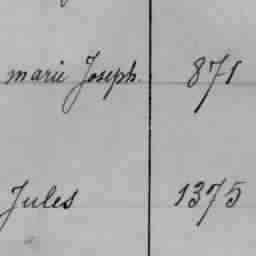 marie Joseph 871
Jules 1375